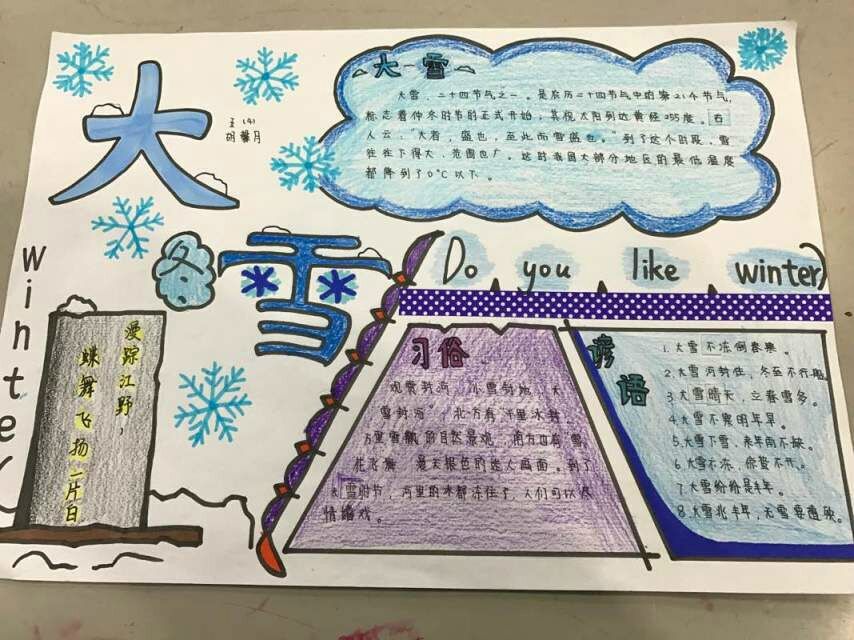 大
五(4)
胡馨月
大雪
大雪,二十四节气之一。是农历二十四节气中的第21个节气,
标志着仲冬时节的正式开始;其视太阳到达黄经255度。古
人云:“大者,盛也,至此而雪盛也。”到了这个时段,雪
往往下得大、范围也广。这时我国大部分地区的最低温度
都降到了0℃以下。
冬
雪
winter
Do you like winter?
爱踪江野,
蝶舞飞扬一片白
习俗
观赏封河 “小雪封地,大
雪封河”,北方有“千里冰封,
万里雪飘”的自然景观,南方也有“雪
花飞舞,漫天银色”的迷人画面。到了
大雪时节,河里的冰都冻住了,人们可以尽
情嬉戏。
谚语
1.大雪不冻倒春寒。
2.大雪河封住,冬至不行船。
3.大雪晴天,立春雪多。
4.大雪不寒明年旱。
5.大雪下雪,来年雨不缺。
6.大雪不冻,惊蛰不开。
7.大雪纷纷是丰年。
8.大雪兆丰年,无雪要遭殃。